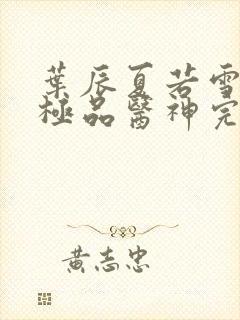 葉辰夏若雪
極品醫神完
黃志忠